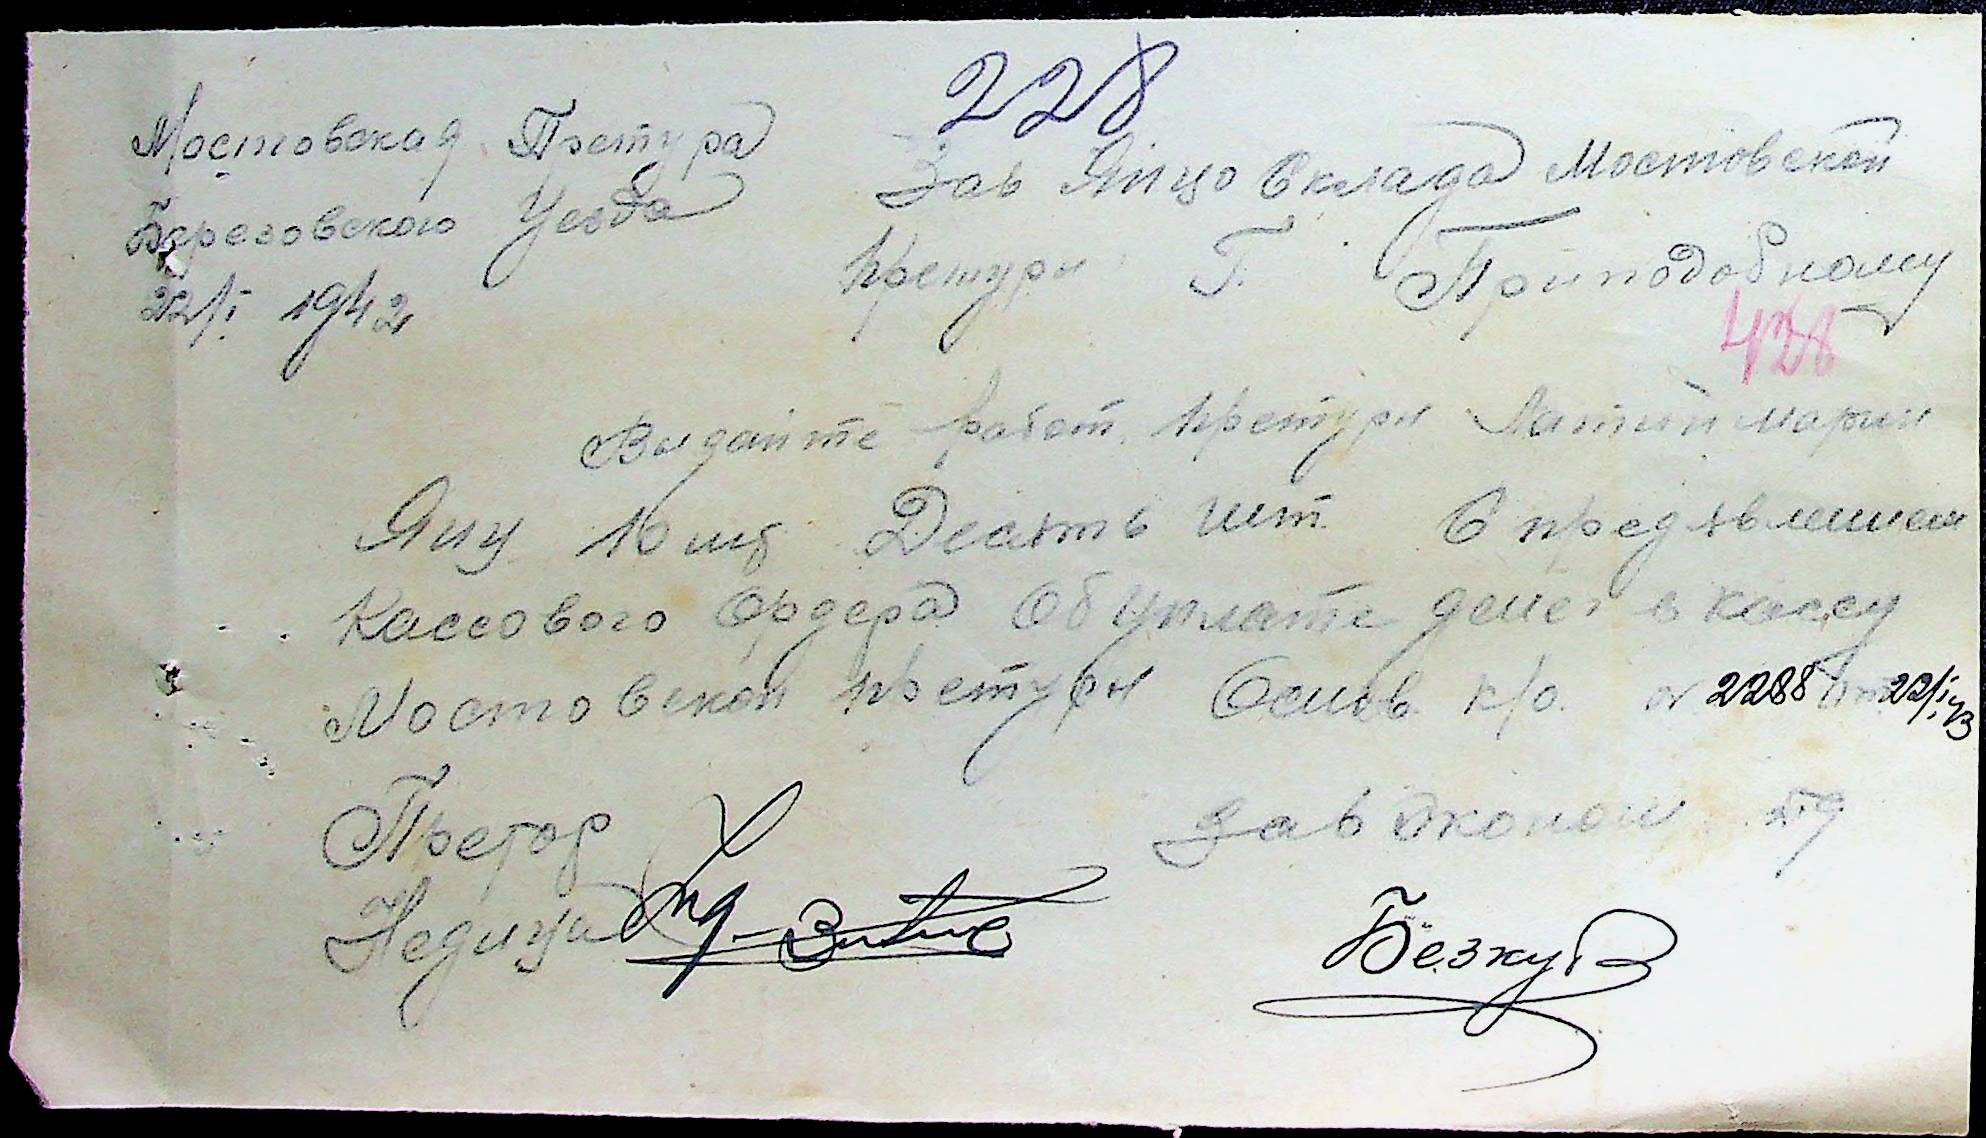 228
Мостовская Претура
Березовского Уезда
22/I 1942
Зав Яйцо Склада Мостовской
претури Г. Приподобному
428
Выдайте работ. претури Марии
Яиц 10 шт Десять шт. С предявлением
Кассового Ордера Об уплате денег в кассу
Мостовской претуры Основ. к/о. № 2288 от 22/I 43
Претор
Зав Эконом
Недицул
Безкуб